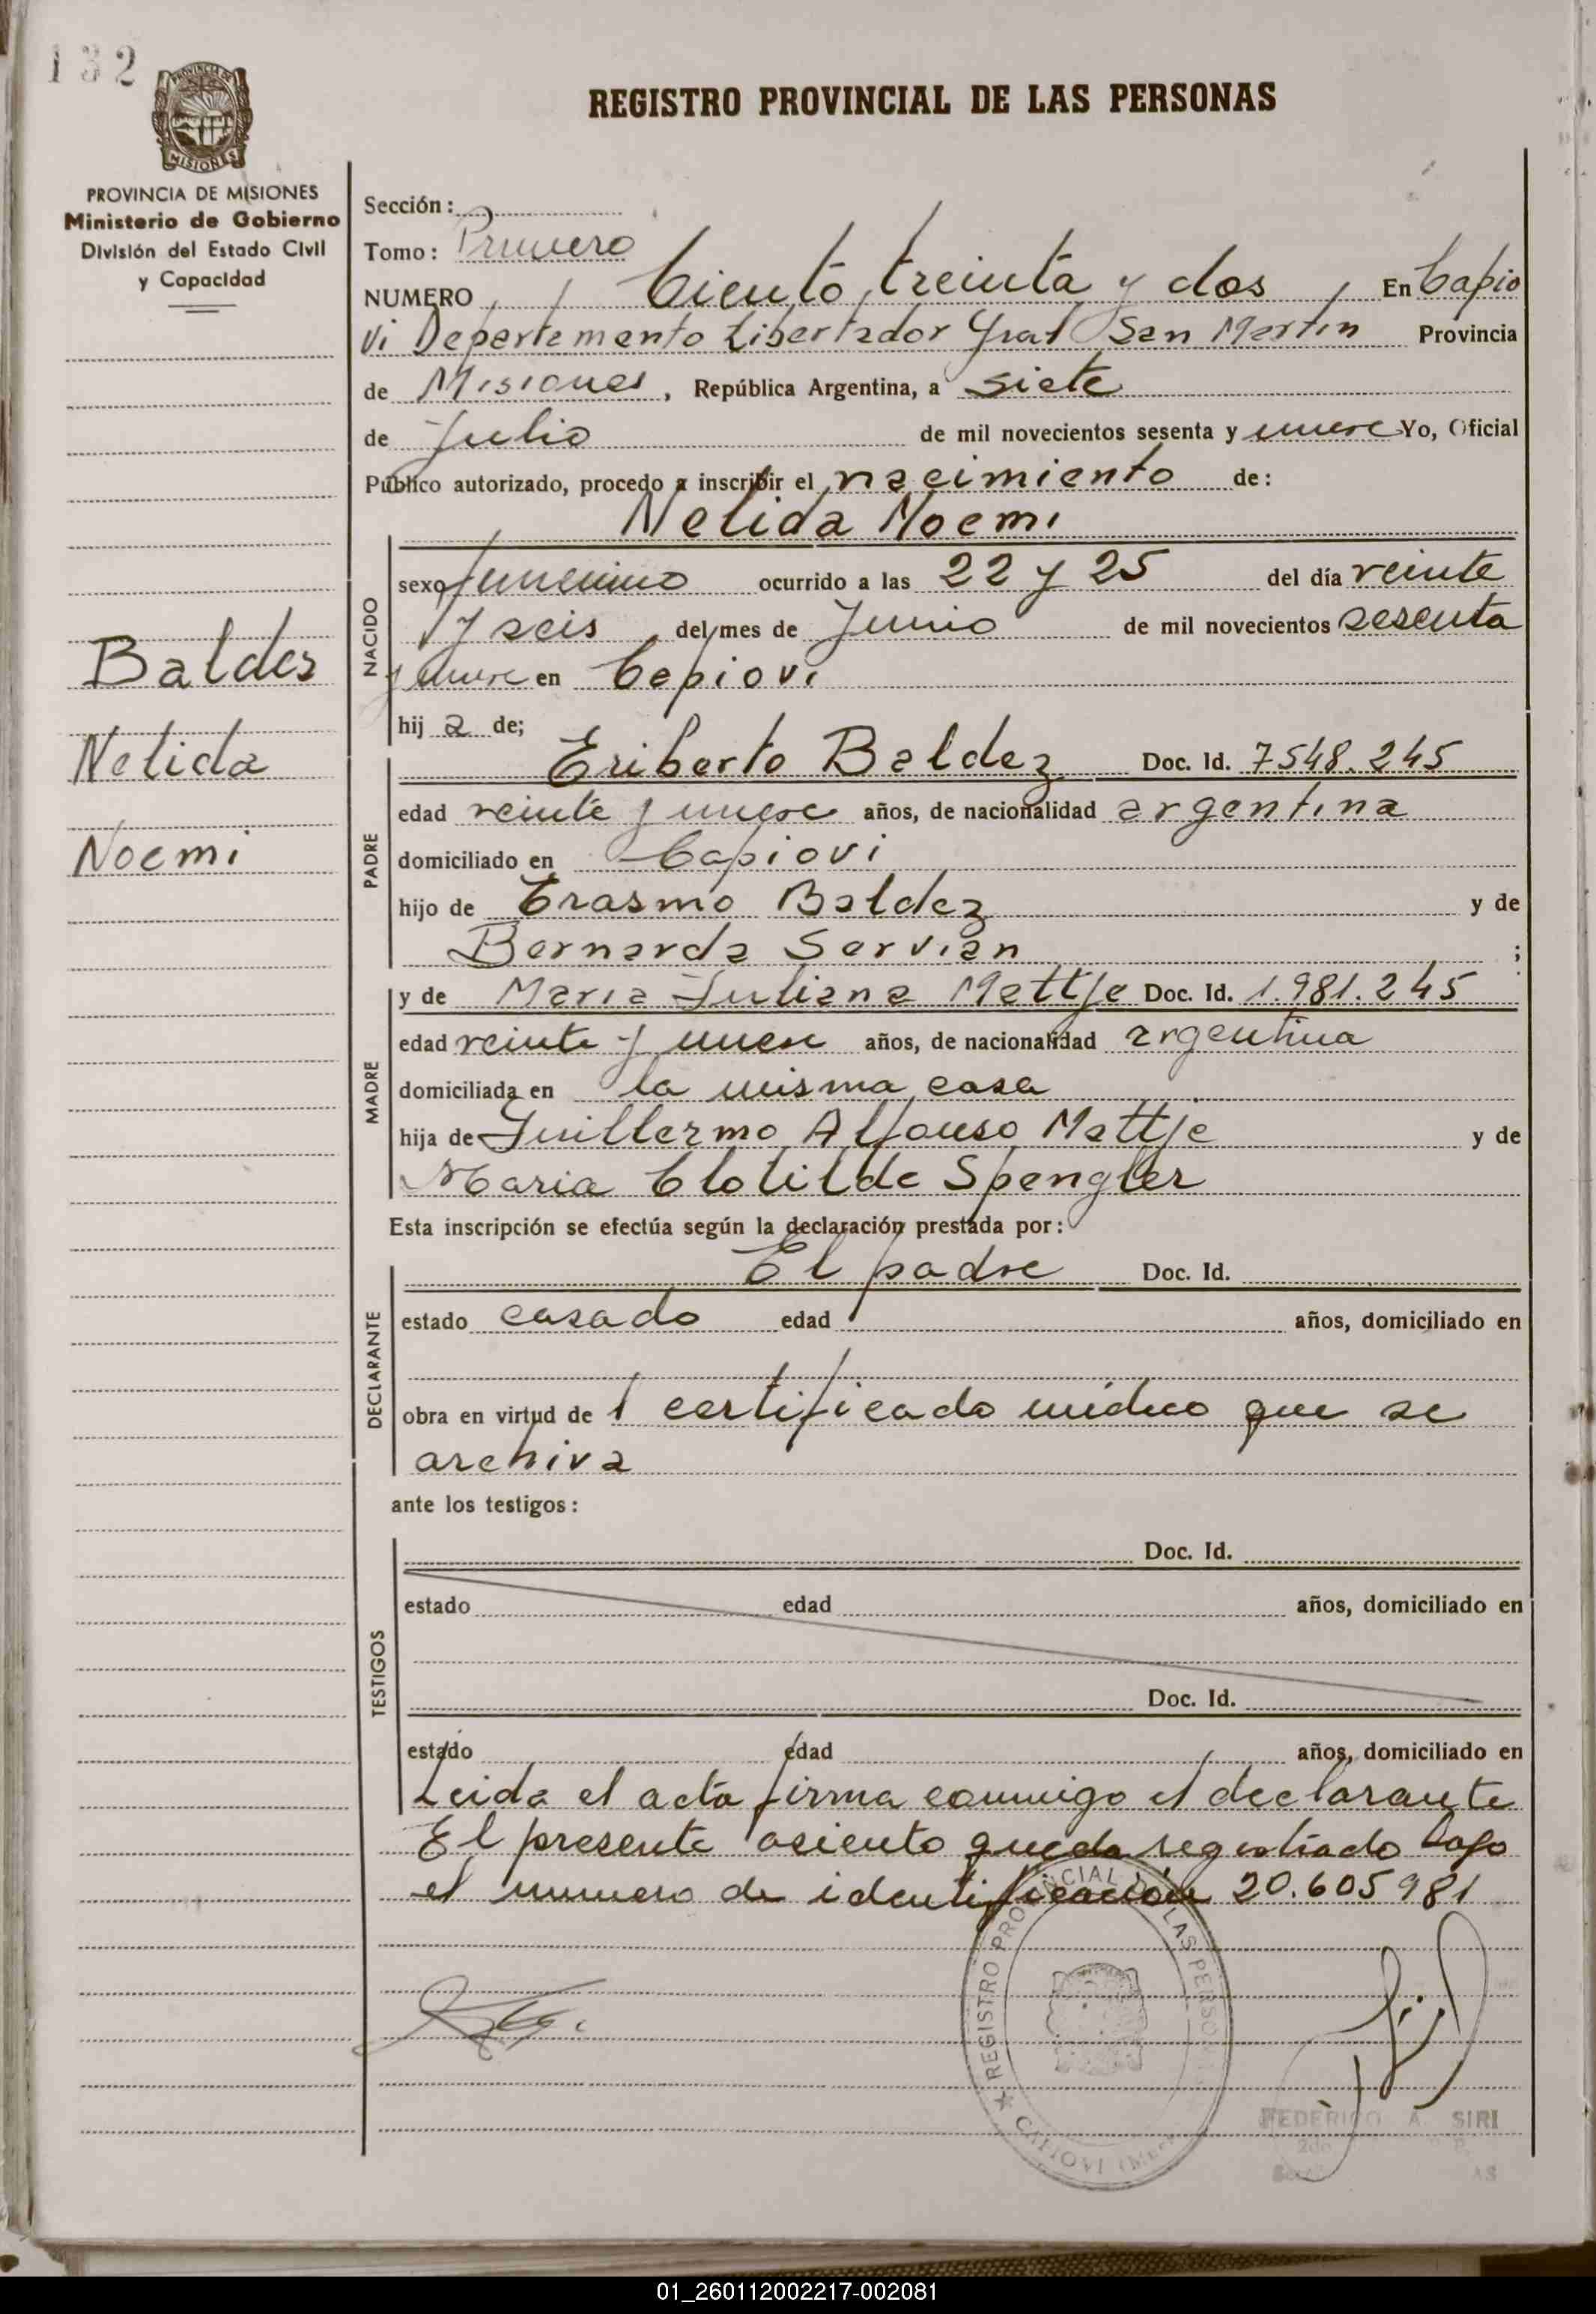 132
PROVINCIA DE
MISIONES
PROVINCIA DE MISIONES
Ministerio de Gobierno
División del Estado Civil
y Capacidad
Baldez
Nelida
Noemi
REGISTRO PROVINCIAL DE LAS PERSONAS
Sección:
Tomo: Primero
NUMERO Ciento treinta y dos En Capio
vi Departamento Libertador Gral San Martin Provincia
de Misiones, República Argentina, a siete
de Julio de mil novecientos sesenta y nueve Yo, Oficial
Público autorizado, procedo a inscribir el nacimiento de:
Nelida Noemi
NACIDO
sexo femenino ocurrido a las 22 y 25 del día veinte
y seis del mes de Junio de mil novecientos sesenta
y nueve en Capiovi
hij a de;
PADRE
Eriberto Baldez Doc. Id. 7548.245
edad veinte y nueve años, de nacionalidad argentina
domiciliado en Capiovi
hijo de Erasmo Baldez y de
Bernarda Servian ;
MADRE
y de Maria Juliana Mattje Doc. Id. 1.981.245
edad veinte y nueve años, de nacionalidad argentina
domiciliada en la misma casa
hija de Guillermo Alfonso Mattje y de
Maria Clotilde Spengler
Esta inscripción se efectúa según la declaración prestada por:
DECLARANTE
El padre Doc. Id.
estado casado edad años, domiciliado en
obra en virtud de 1 certificado médico que se
archiva
ante los testigos:
TESTIGOS
Doc. Id.
estado edad años, domiciliado en
Doc. Id.
estado edad años, domiciliado en
Leida el acta firma conmigo el declarante
El presente asiento queda registrado bajo
el numero de identificación 20.605981
REGISTRO PROVINCIAL DE LAS PERSONAS
CAPIOVI
FEDERICO A. SIRI
01_260112002217-002081